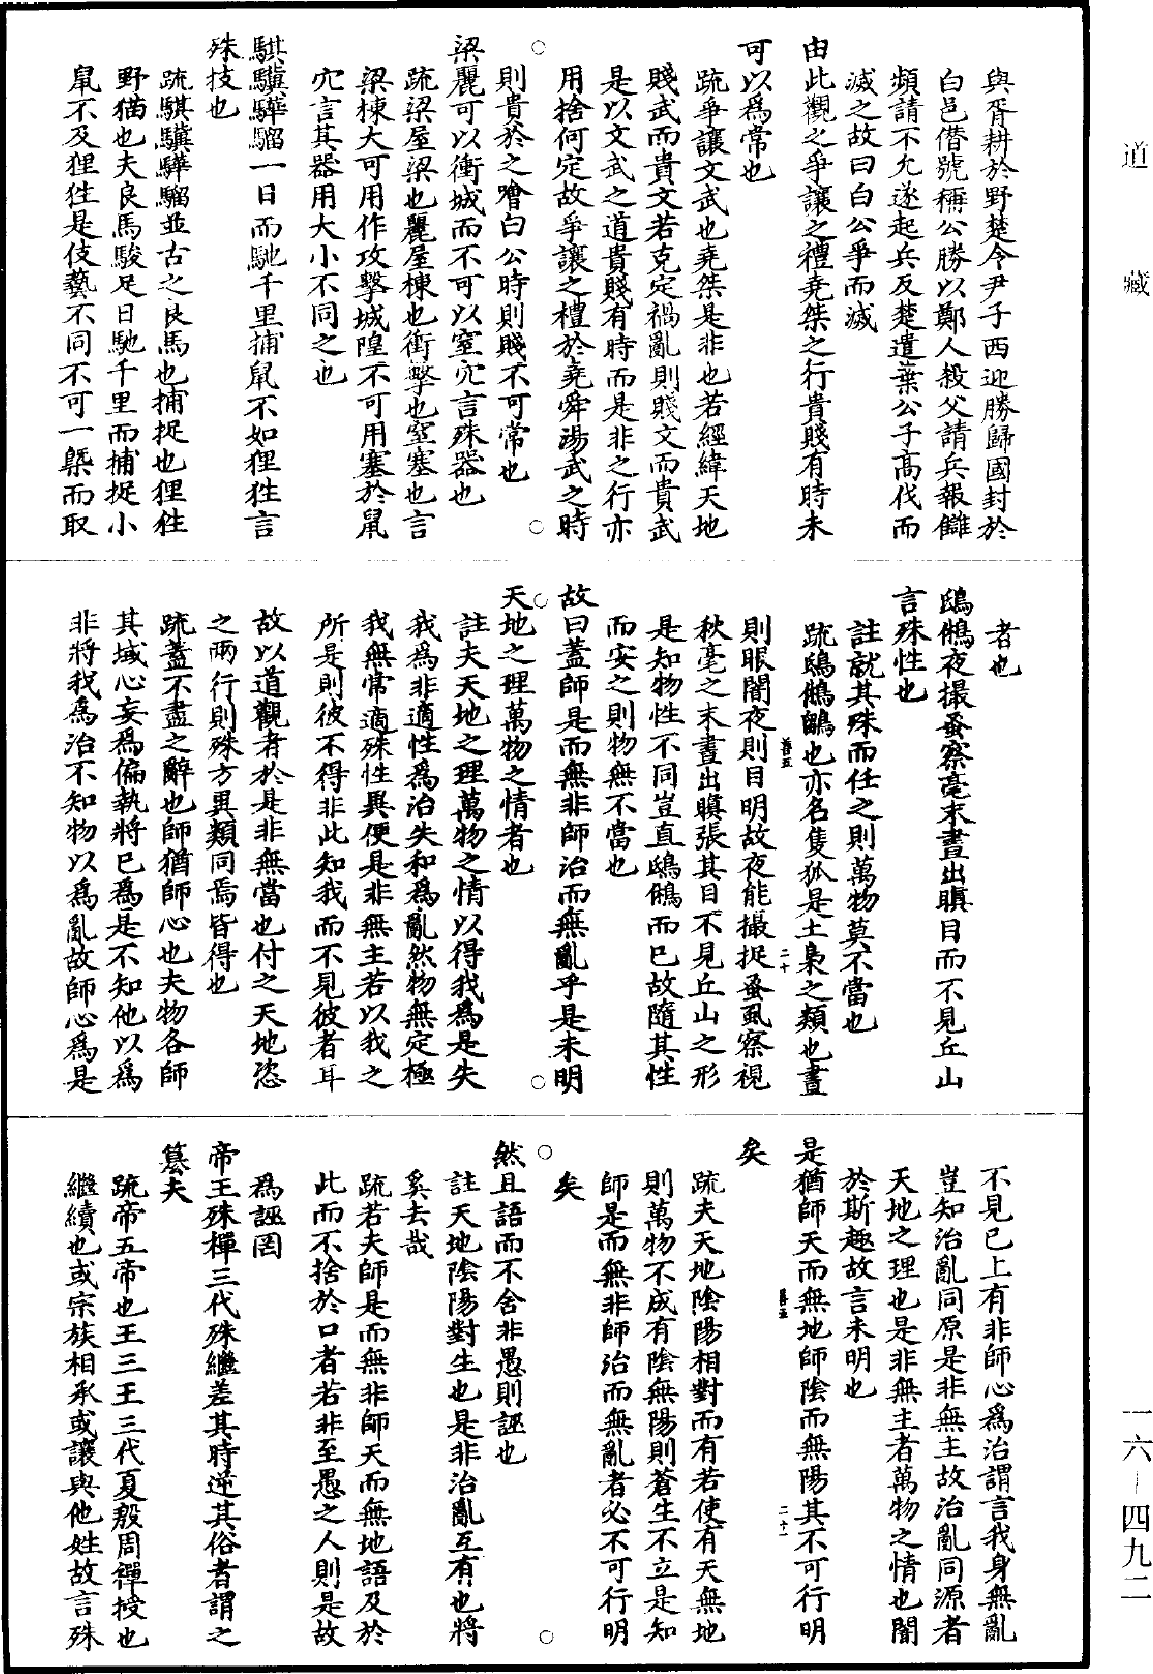 與胥耕於野楚令尹子西迎勝歸國封於
白邑僭號稱公勝以鄭人殺父請兵報讎
頻請不允遂起兵反楚遣葉公子髙伐而
滅之故曰白公爭而滅
由此觀之爭讓之禮堯桀之行貴賤有時未
可以爲常也
䟽爭讓文武也堯桀是非也若經緯天地
賤武而貴文若克定禍亂則賤文而貴武
是以文武之道貴賤有時而是非之行亦
用捨何定故爭讓之禮於堯舜湯武之時
○則貴於之噲白公時則賤不可常也○
梁麗可以衝城而不可以窒穴言殊器也
䟽梁屋梁也麗屋棟也衝擊也窒塞也言
梁棟大可用作攻擊城隍不可用塞於鼠
穴言其器用大小不同之也
騏驥驊騮一日而馳千里捕鼠不如狸狌言
殊技也
䟽騏驥驊騮並古之良馬也捕捉也狸狌
野猫也夫良馬駿足日馳千里而捕捉小
鼠不及狸狌是伎藝不同不可一槩而取
者也
鴟鵂夜撮蚤察毫末晝出瞋目而不見丘山
言殊性也
註就其殊而任之則萬物莫不當也
䟽鴟鵂鵩也亦名隻狐是土梟之類也晝
善五 二十
則眼闇夜則目明故夜能撮捉蚤虱察視
秋毫之末晝出瞋張其目不見丘山之形
是知物性不同豈直鴟鵂而已故隨其性
而安之則物無不當也
故曰蓋師是而無非師治而無亂乎是未明
○天地之理萬物之情者也○
註夫天地之理萬物之情以得我爲是失
我爲非適性爲治失和爲亂然物無定極
我無常適殊性異便是非無主若以我之
所是則彼不得非此知我而不見彼者耳
故以道觀者於是非無當也付之天地恣
之兩行則殊方異類同焉皆得也
䟽蓋不盡之辭也師猶師心也夫物各師
其域心妄爲偏執將已爲是不知他以爲
非將我爲治不知物以爲亂故師心爲是
不見已上有非師心爲治謂言我身無亂
豈知治亂同原是非無主故治亂同源者
天地之理也是非無主者萬物之情也闇
於斯趣故言未明也
是猶師天而無地師陰而無陽其不可行明
善五 二十一
矣
䟽夫天地陰陽相對而有若使有天無地
則萬物不成有陰無陽則蒼生不立是知
師是而無非師治而無亂者必不可行明
○矣○
然且語而不舍非愚則誣也
註天地陰陽對生也是非治亂互有也將
奚去哉
䟽若夫師是而無非師天而無地語及於
此而不捨於口者若非至愚之人則是故
爲誣罔
帝王殊禪三代殊繼差其時逆其俗者謂之
簒夫
䟽帝五帝也王三王三代夏殷周禪授也
繼續也或宗族相承或讓與他姓故言殊
道藏
一六—四九二